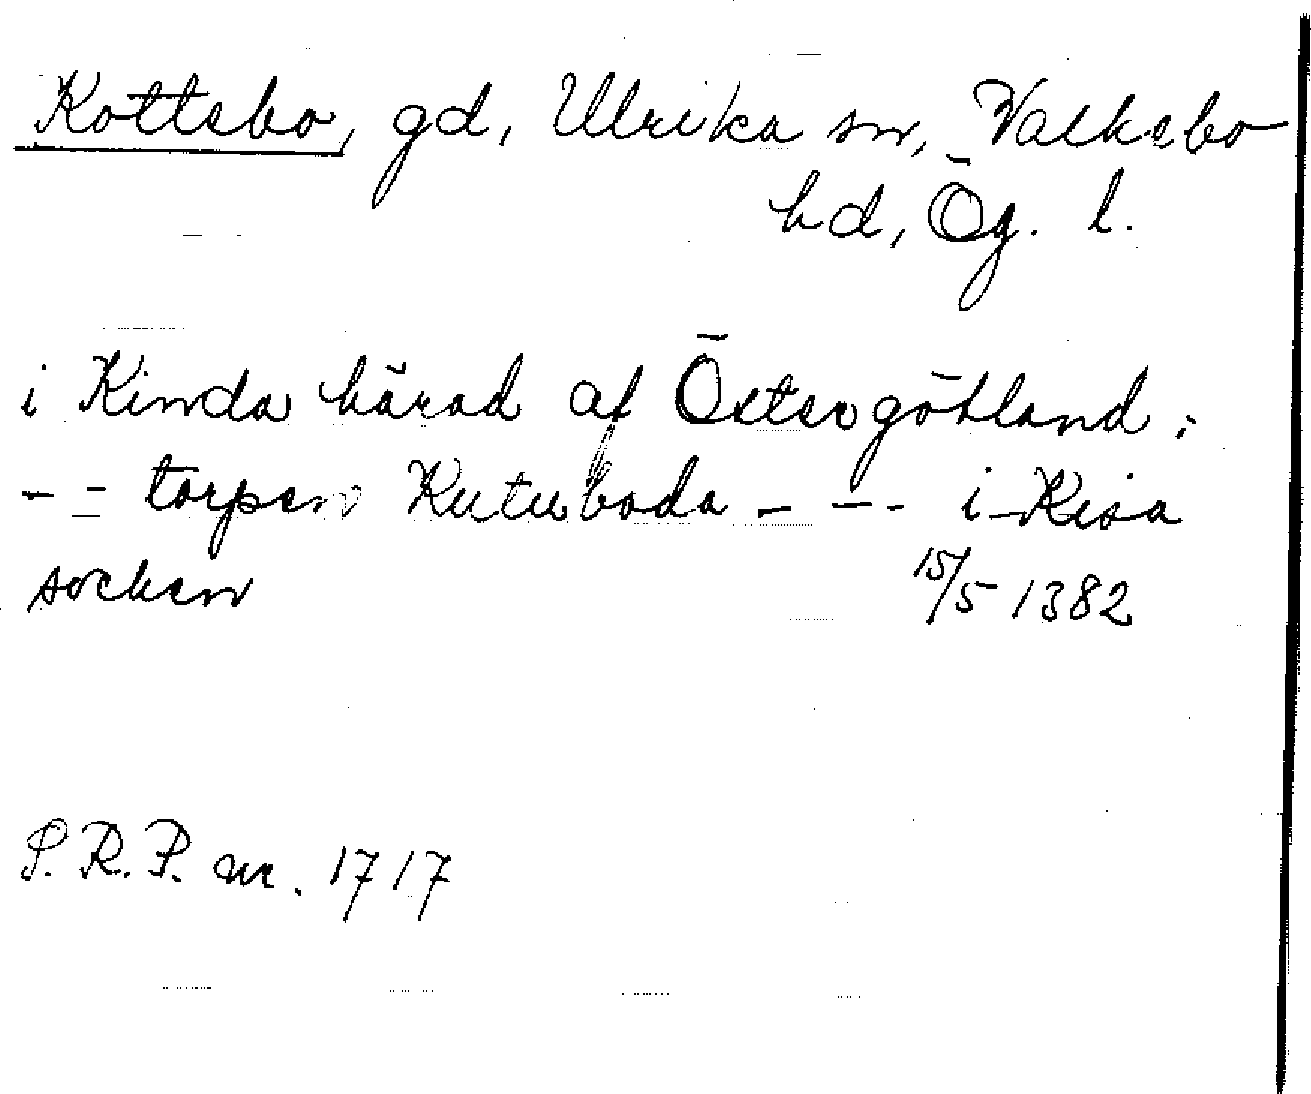 Kottebo, gd, Ulrika sn, Valkebo
hd, Ög. l.
i Kinda härad af Östergöthland;
- - torpen Kutuboda - - - i Kisa
socken 15/5 1382
S.R.P. nr. 1717